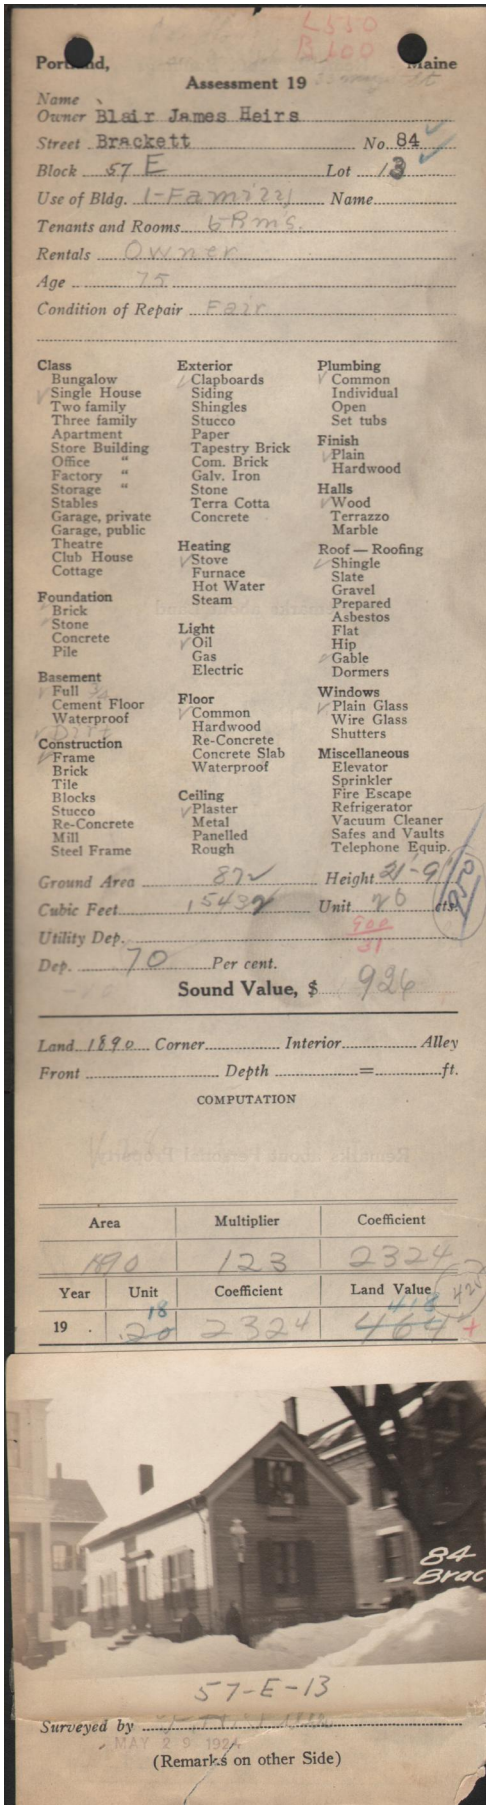 L550
B600
Portland, Maine
Assessment 19
Name
Owner Blair James Heirs
Street Brackett No. 84
Block 57 E Lot 13
Use of Bldg. 1-Family Name
Tenants and Rooms 6 Rms.
Rentals Owner
Age 75
Condition of Repair Fair
Class
Bungalow
Single House
Two family
Three family
Apartment
Store Building
Office "
Factory "
Storage "
Stables
Garage, private
Garage, public
Theatre
Club House
Cottage
Foundation
Brick
Stone
Concrete
Pile
Basement
Full 3/4
Cement Floor
Waterproof
Dirt
Construction
Frame
Brick
Tile
Blocks
Stucco
Re-Concrete
Mill
Steel Frame
Exterior
Clapboards
Siding
Shingles
Stucco
Paper
Tapestry Brick
Com. Brick
Galv. Iron
Stone
Terra Cotta
Concrete
Heating
Stove
Furnace
Hot Water
Steam
Light
Oil
Gas
Electric
Floor
Common
Hardwood
Re-Concrete
Concrete Slab
Waterproof
Ceiling
Plaster
Metal
Panelled
Rough
Plumbing
Common
Individual
Open
Set tubs
Finish
Plain
Hardwood
Halls
Wood
Terrazzo
Marble
Roof — Roofing
Shingle
Slate
Gravel
Prepared
Asbestos
Flat
Hip
Gable
Dormers
Windows
Plain Glass
Wire Glass
Shutters
Miscellaneous
Elevator
Sprinkler
Fire Escape
Refrigerator
Vacuum Cleaner
Safes and Vaults
Telephone Equip.
Ground Area 872 Height 21'-9"
Cubic Feet 15432 Unit 20 cts.
Utility Dep. 900
31
Dep. 70 Per cent.
Sound Value, $ 926
Land 1890 Corner Interior Alley
Front Depth = ft.
COMPUTATION
Area Multiplier Coefficient
1890 123 2324
Year Unit Coefficient Land Value
18 418 425
19 . .20 2324 464 +
84
Brac
57-E-13
Surveyed by
MAY 29 1924
(Remarks on other Side)